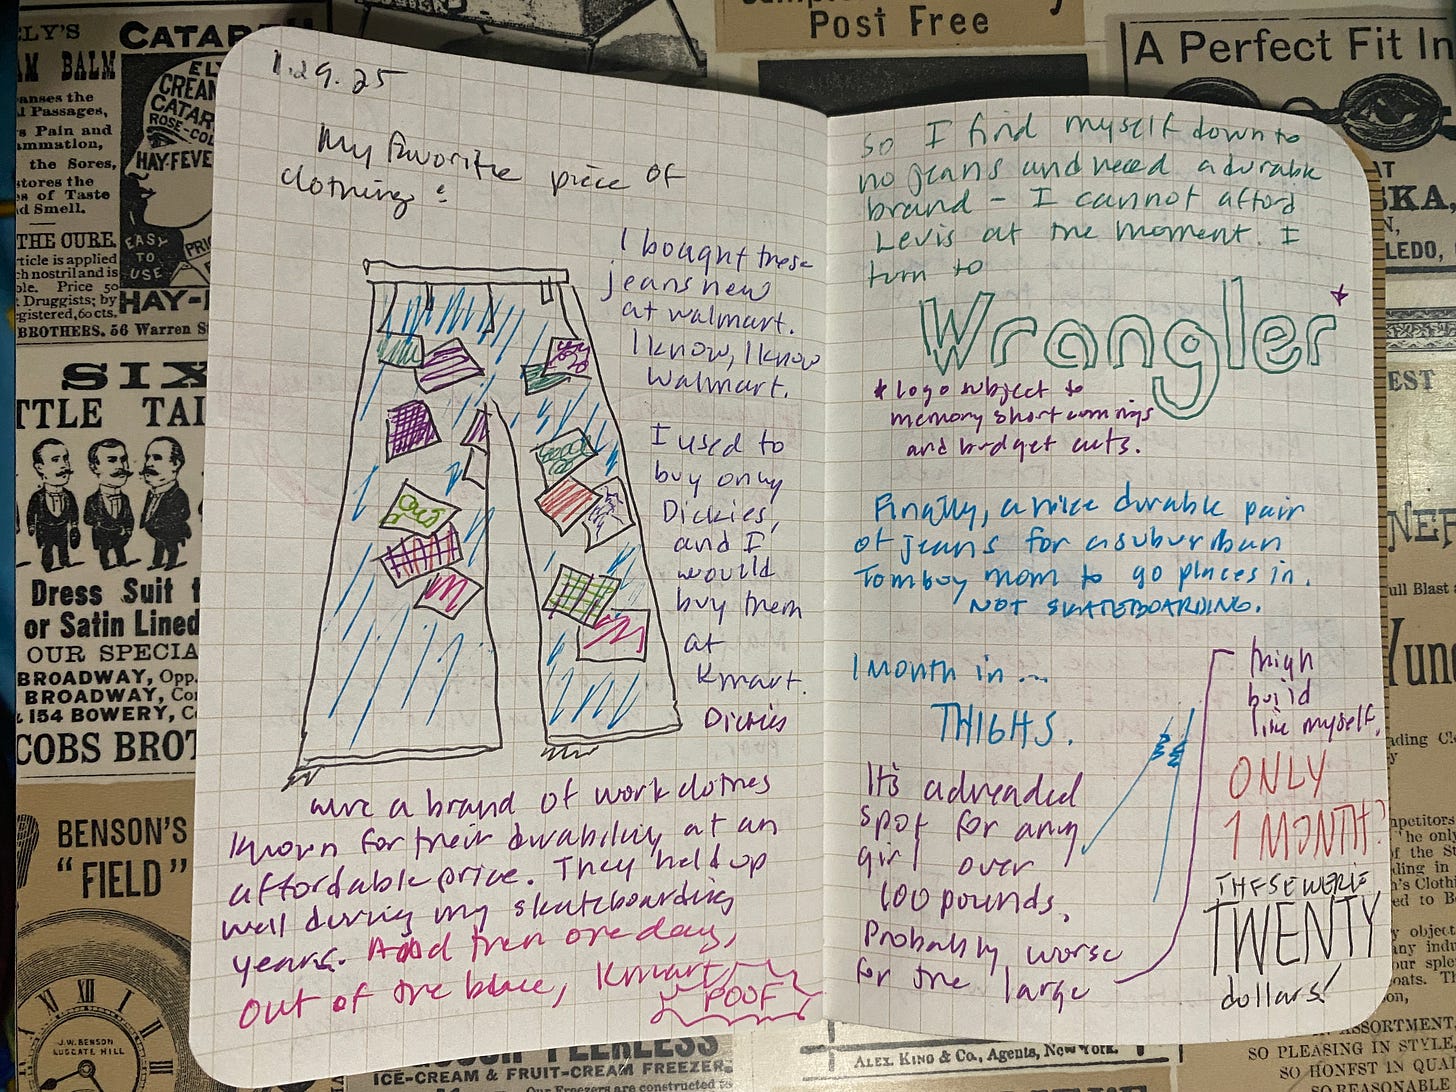 1.29.25
My favorite piece of
clothing:
I bought these
jeans new
at walmart.
I know, I know
Walmart.
I used to
buy only
Dickies,
and I
would
buy them
at
Kmart.
Dickies
were a brand of work clothes
known for their durability at an
affordable price. They held up
well during my skateboarding
years. And then one day,
out of the blue, Kmart
POOF
So I find myself down to
no jeans and need a durable
brand - I cannot afford
Levis at the moment. I
turn to
Wrangler*
* Logo subject to
memory shortcomings
and budget cuts.
Finally, a nice durable pair
of jeans for a suburban
Tomboy mom to go places in.
NOT SKATEBOARDING.
1 Month in...
THIGHS.
It's a dreaded
spot for any
girl over
100 pounds.
Probably worse
for the large
thigh
build
like myself.
ONLY
1 MONTH?
THESE WERE
TWENTY
dollars!
ELY'S
CATAR
AM BALM
anses the
l Passages,
s Pain and
ammation,
the Sores,
stores the
s of Taste
d Smell.
THE CURE.
rticle is applied
ch nostril and is
ble. Price 50
t Druggists; by
gistered, 60 cts.
BROTHERS, 56 Warren S
EL
CREAM
CATAR
ROSE-COL
HAY-FEVE
EASY
TO
USE
PRIC
HAY-F
SIX
TTLE TAI
Dress Suit
or Satin Lined
OUR SPECIA
BROADWAY, Opp.
BROADWAY, Co
& 154 BOWERY, C
COBS BROT
BENSON'S
"FIELD"
J.W. BENSON
LUDGATE HILL
Post Free
A Perfect Fit In
AT
SKA,
N,
LEDO,
EST
NET
ull Blast
Yun
PEERLESS
ICE-CREAM & FRUIT-CREAM FREEZER.
Our Freezers are constructed to
ALEX. KING & CO., Agents, New York.
ASSORTMENT
SO PLEASING IN STYLE,
SO HONEST IN QUAL
SO REASONABLE